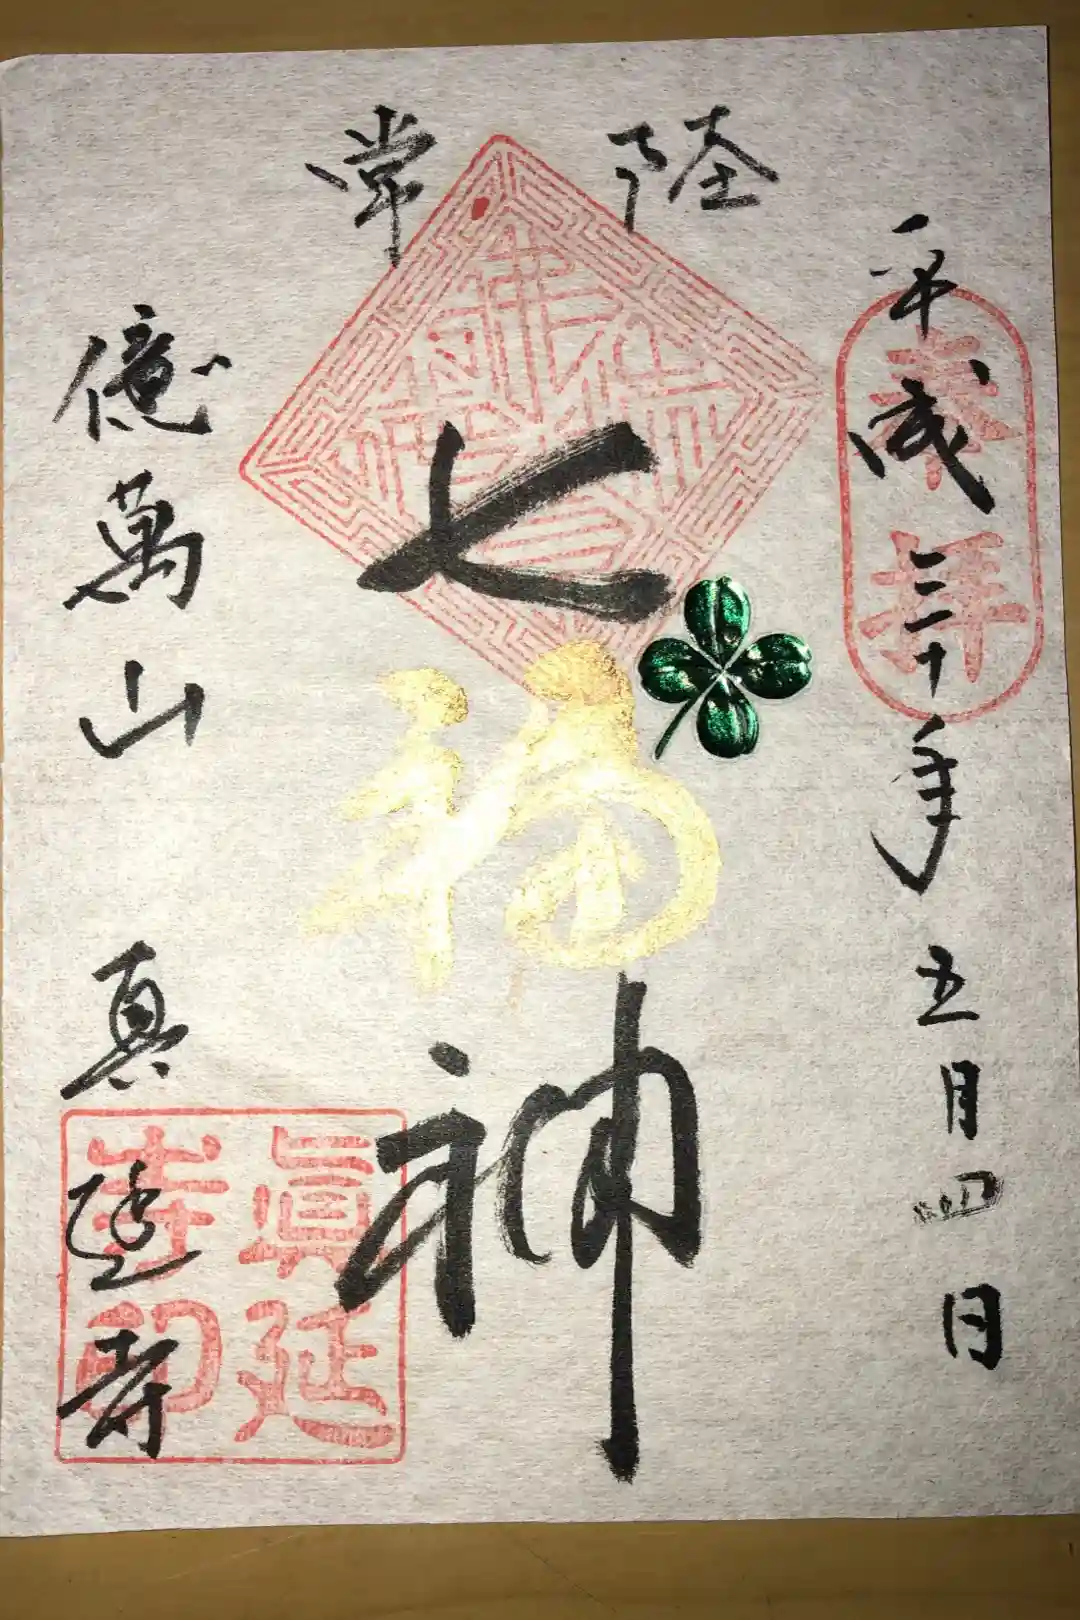 常陸
平成三十年五月四日
奉拝
七福神
億萬山 真延寺
眞延寺印